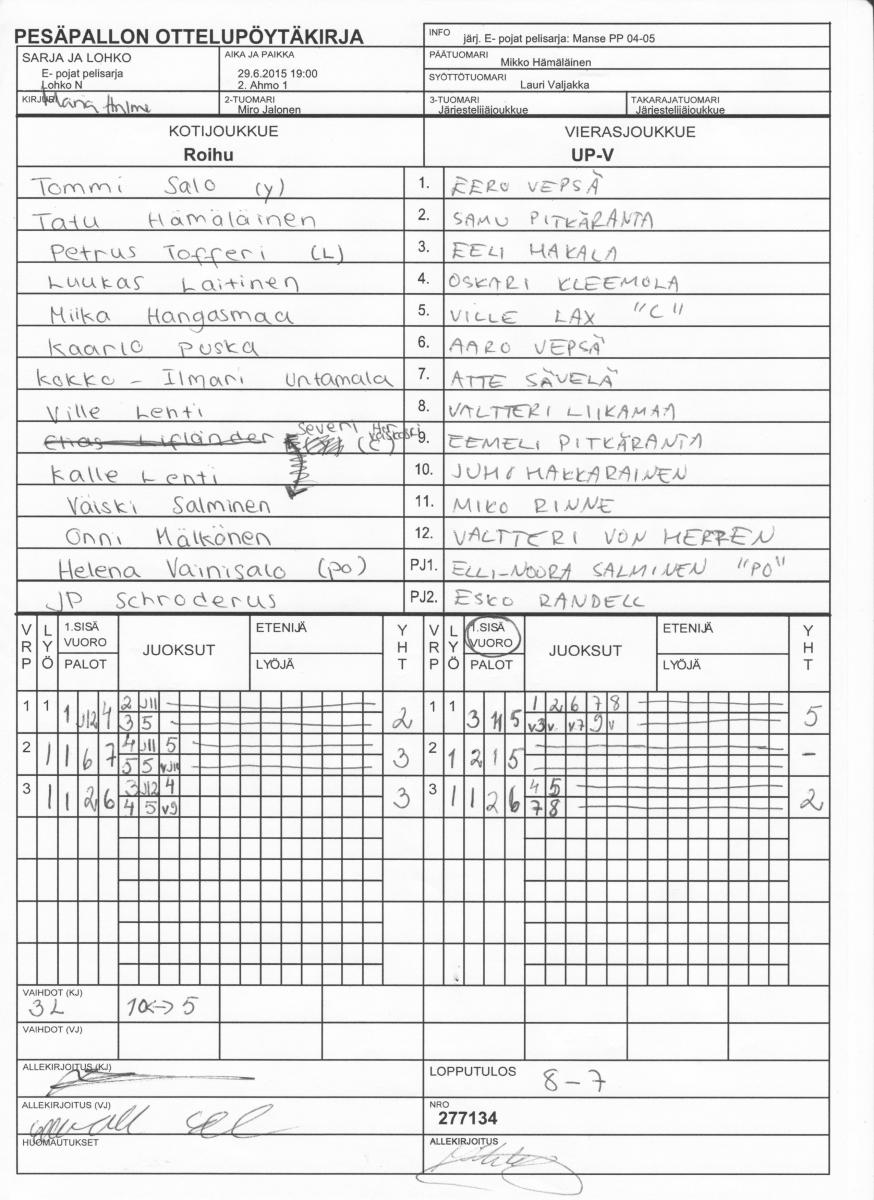 PESÄPALLON OTTELUPÖYTÄKIRJA
INFO järj. E- pojat pelisarja: Manse PP 04-05
SARJA JA LOHKO
E- pojat pelisarja
Lohko N
AIKA JA PAIKKA
29.6.2015 19:00
2. Ahmo 1
PÄÄTUOMARI
Mikko Hämäläinen
SYÖTTÖTUOMARI
Lauri Valjakka
2-TUOMARI
Miro Jalonen
3-TUOMARI
Järjestelijäjoukkue
TAKARAJATUOMARI
Järjestelijäjoukkue
KOTIJOUKKUE
Roihu
VIERASJOUKKUE
UP-V
Tommi Salo (y) 1. EERO VEPSÄ
Tatu Hämäläinen 2. SAMU PITKÄRANTA
Petrus Tofferi (L) 3. EELI MAKALA
Luukas Laitinen 4. OSKARI KLEEMOLA
Miika Hangasmaa 5. VILLE LAX "C"
Kaarlo Puska 6. AARO VEPSÄ
Kokko - Ilmari Untamala 7. ATTE SÄVELÄ
Ville Lehti 8. VALTTERI LIIKAMAA
Elias Lifländer Severi (C) 9. EEMELI PITKÄRANTA
Kalle Lehti 10. JUHO MAKKARAINEN
Väiski Salminen 11. MIKO RINNE
Onni Mälkönen 12. VALTTERI VON HERTEN
Helena Vainisalo (po) PJ1. ELLI-NOORA SALMINEN "PO"
JP Schroderus PJ2. ESKO RANDELL
VRP LYÖ 1.SISÄ VUORO PALOT JUOKSUT ETENIJÄ LYÖJÄ YHT VRP LYÖ 1.SISÄ VUORO PALOT JUOKSUT ETENIJÄ LYÖJÄ YHT
1 1 1 J12 4 2 J11 2 1 1 3 11 5 1 2 6 7 8 5
3 5 v3 v v7 9 v
2 1 1 6 7 4 J11 5 3 2 1 2 1 5 -
5 5 vJ10
3 1 1 2 6 3 J12 4 3 3 1 1 2 6 4 5 2
4 5 v9 7 8
VAIHDOT (KJ)
3L 10<-> 5
VAIHDOT (VJ)
ALLEKIRJOITUS (KJ)
LOPPUTULOS 8-7
ALLEKIRJOITUS (VJ)
NRO
277134
HUOMAUTUKSET
ALLEKIRJOITUS